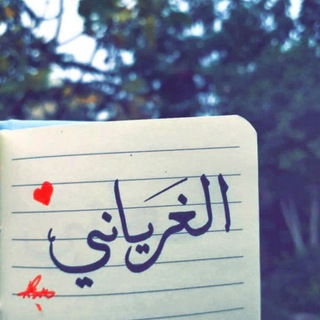 الغرياني